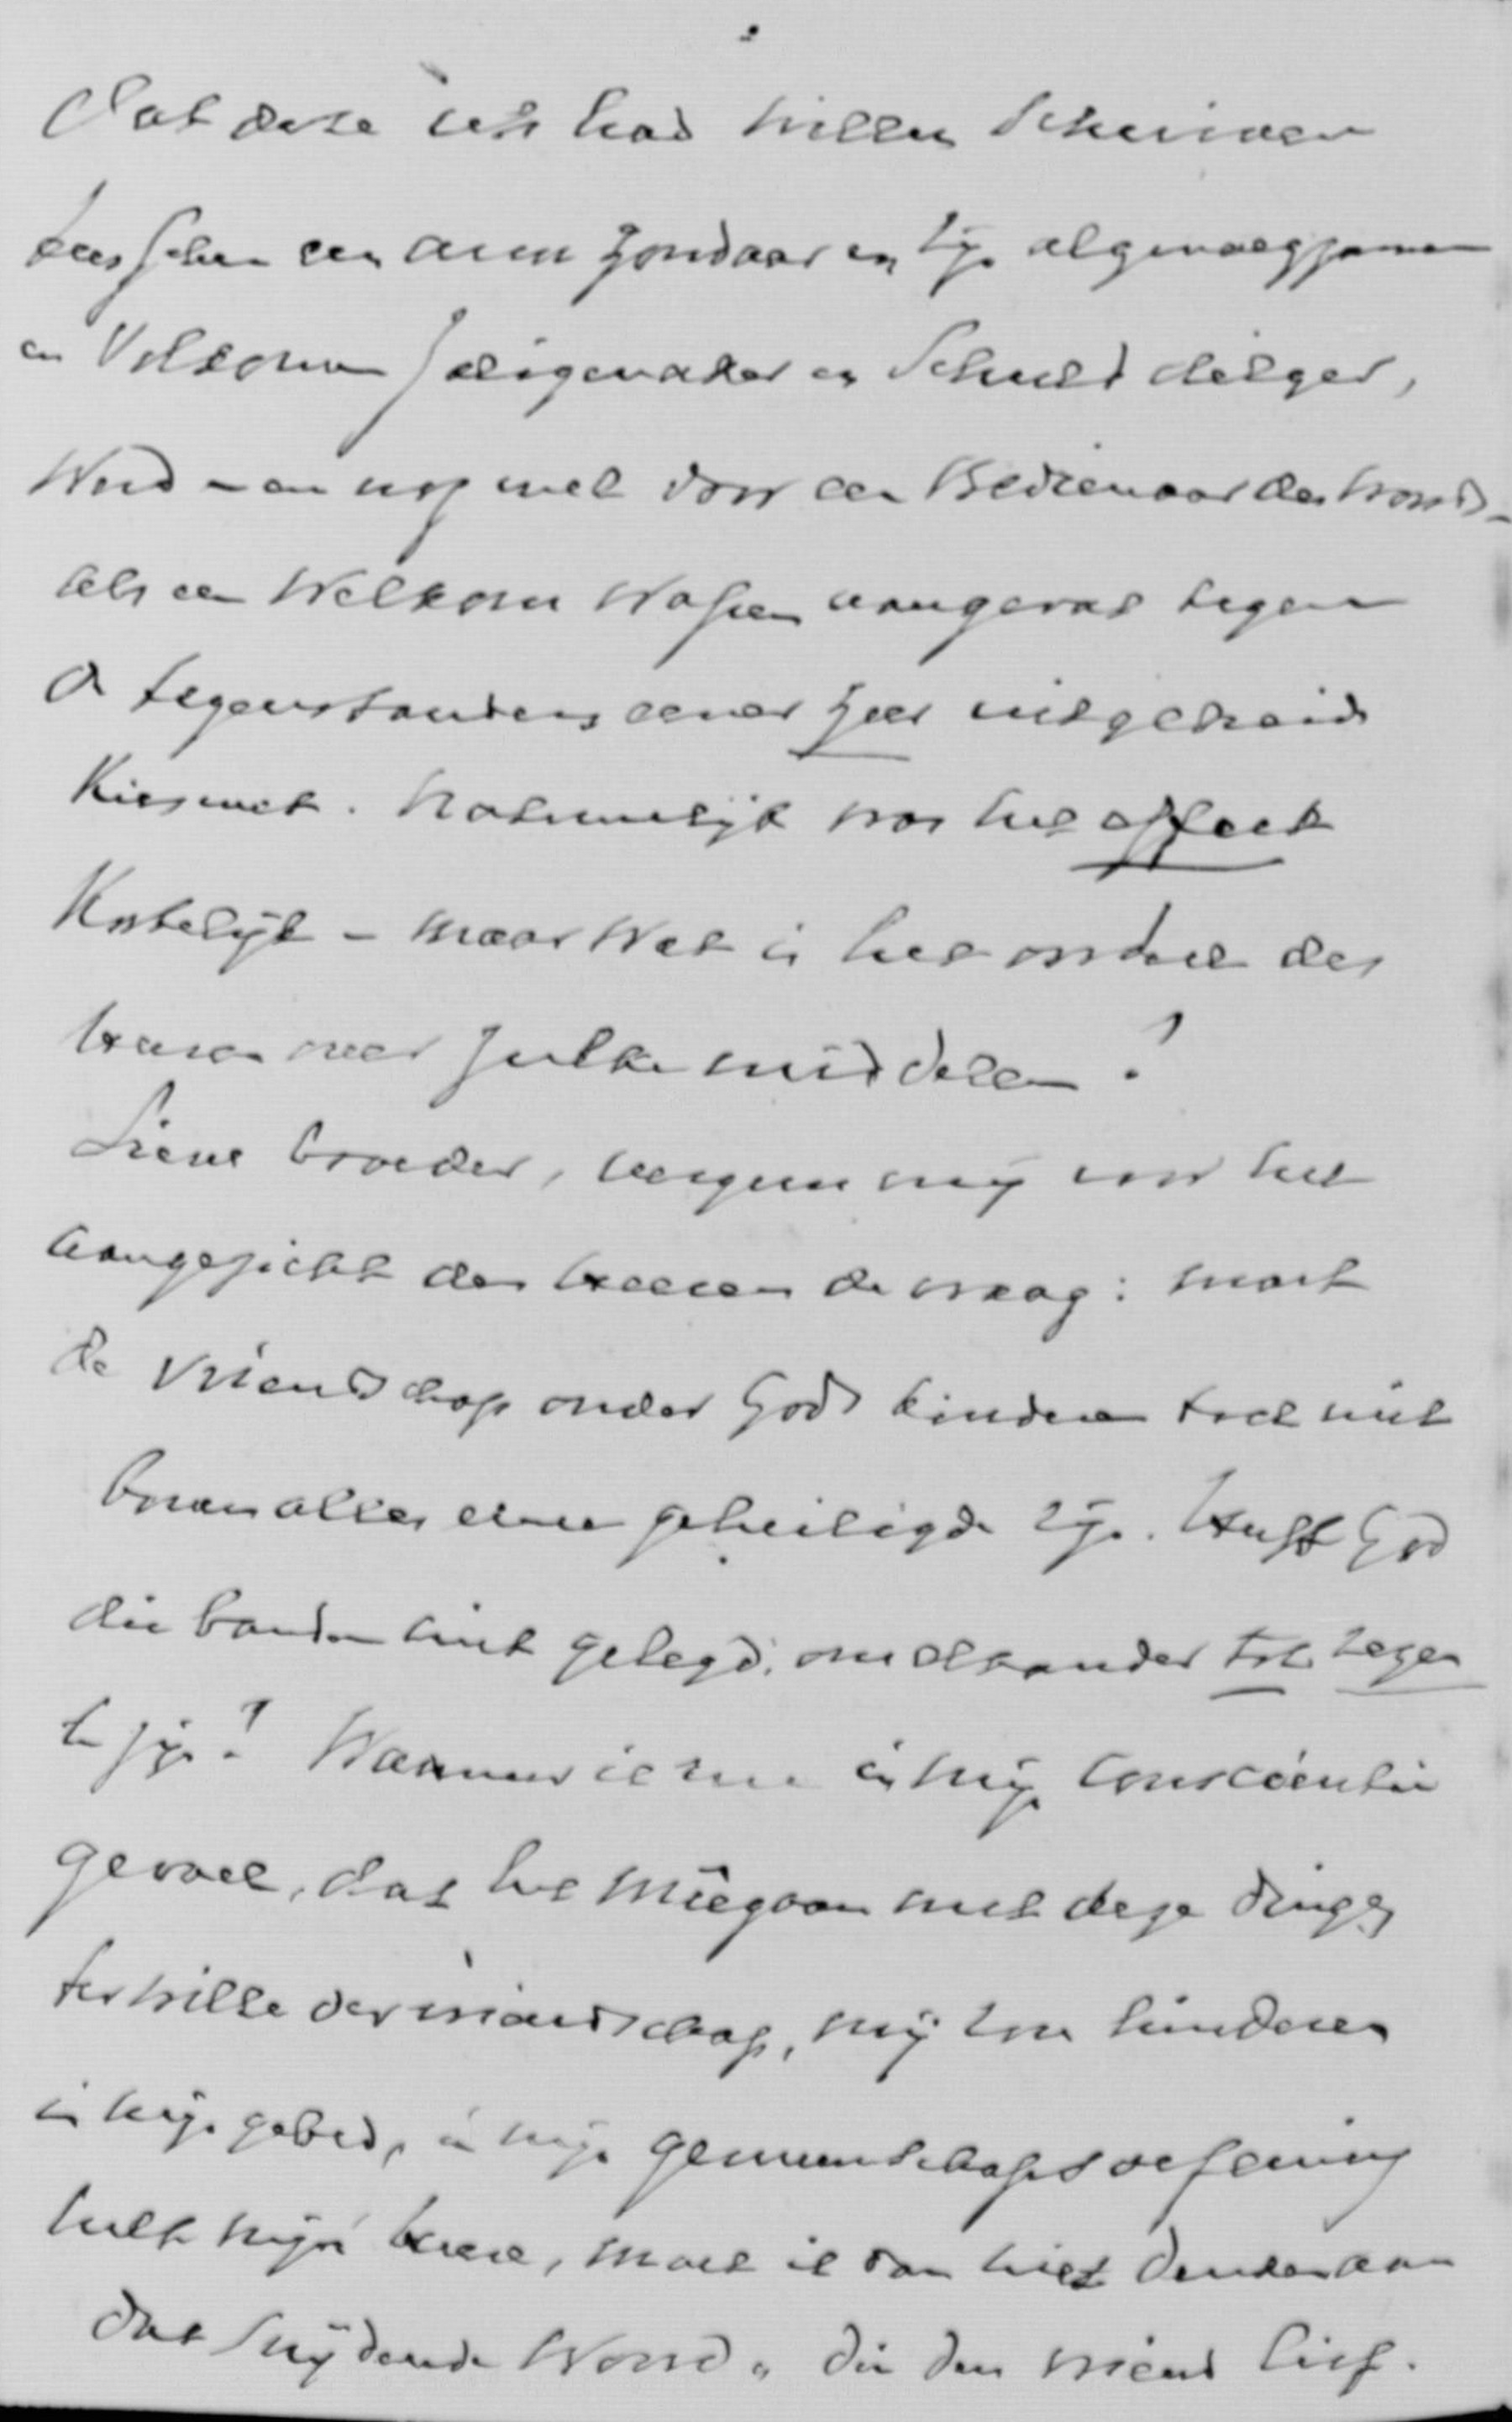 Dat deze zich had willen schuiven
tusschen een arm zondaar en zijn algenoegzamen
en Volkomen Zaligmaker en Schulddelger,
Werd – en nog wel door een Bedienaar des Woords –
als een Welkom Wapen aangevat tegen
de tegenstanders eener zeer uitgebreide
Kieswet. Natuurlijk was het effect
Kostelijk – maar Wat is het oordeel des
Heeren over zulke middelen?
Lieve broeder, vergun mij voor het
aangezicht des Heeren de vraag: moet
de Vriendschap onder Gods kinderen toch niet
boven alles eene geheiligde zijn. Heeft God
die banden niet gelegd, om elkander tot zegen
te zijn? Wanneer ik nu in mijn Conscientie
gevoel, dat het Meêgaan met deze dingen
ter wille der vriendschap, mij zou hinderen
in mijn gebed, in mijn gemeenschapsoefening
met mijn' Heere, moet ik dan niet denken aan
dat snijdende Woord „ die den vriend lief.